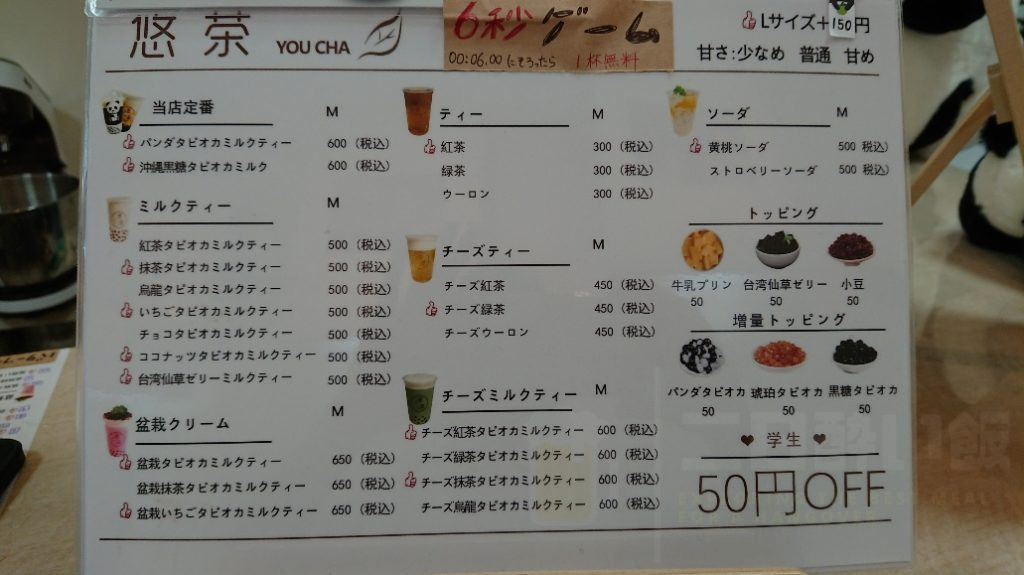 悠茶 YOU CHA
6秒ゲーム
00:06.00にそろったら 1杯無料
Lサイズ+150円
甘さ:少なめ 普通 甘め
当店定番 M
パンダタピオカミルクティー 600 (税込)
沖縄黒糖タピオカミルク 600 (税込)
ミルクティー M
紅茶タピオカミルクティー 500 (税込)
抹茶タピオカミルクティー 500 (税込)
烏龍タピオカミルクティー 500 (税込)
いちごタピオカミルクティー 500 (税込)
チョコタピオカミルクティー 500 (税込)
ココナッツタピオカミルクティー 500 (税込)
台湾仙草ゼリーミルクティー 500 (税込)
盆栽クリーム M
盆栽タピオカミルクティー 650 (税込)
盆栽抹茶タピオカミルクティー 650 (税込)
盆栽いちごタピオカミルクティー 650 (税込)
ティー M
紅茶 300 (税込)
緑茶 300 (税込)
ウーロン 300 (税込)
チーズティー M
チーズ紅茶 450 (税込)
チーズ緑茶 450 (税込)
チーズウーロン 450 (税込)
チーズミルクティー M
チーズ紅茶タピオカミルクティー 600 (税込)
チーズ緑茶タピオカミルクティー 600 (税込)
チーズ抹茶タピオカミルクティー 600 (税込)
チーズ烏龍タピオカミルクティー 600 (税込)
ソーダ M
黄桃ソーダ 500 税込)
ストロベリーソーダ 500 税込)
トッピング
牛乳プリン 台湾仙草ゼリー 小豆
50 50 50
増量トッピング
パンダタピオカ 琥珀タピオカ 黒糖タピオカ
50 50 50
❤ 学生 ❤
50円OFF